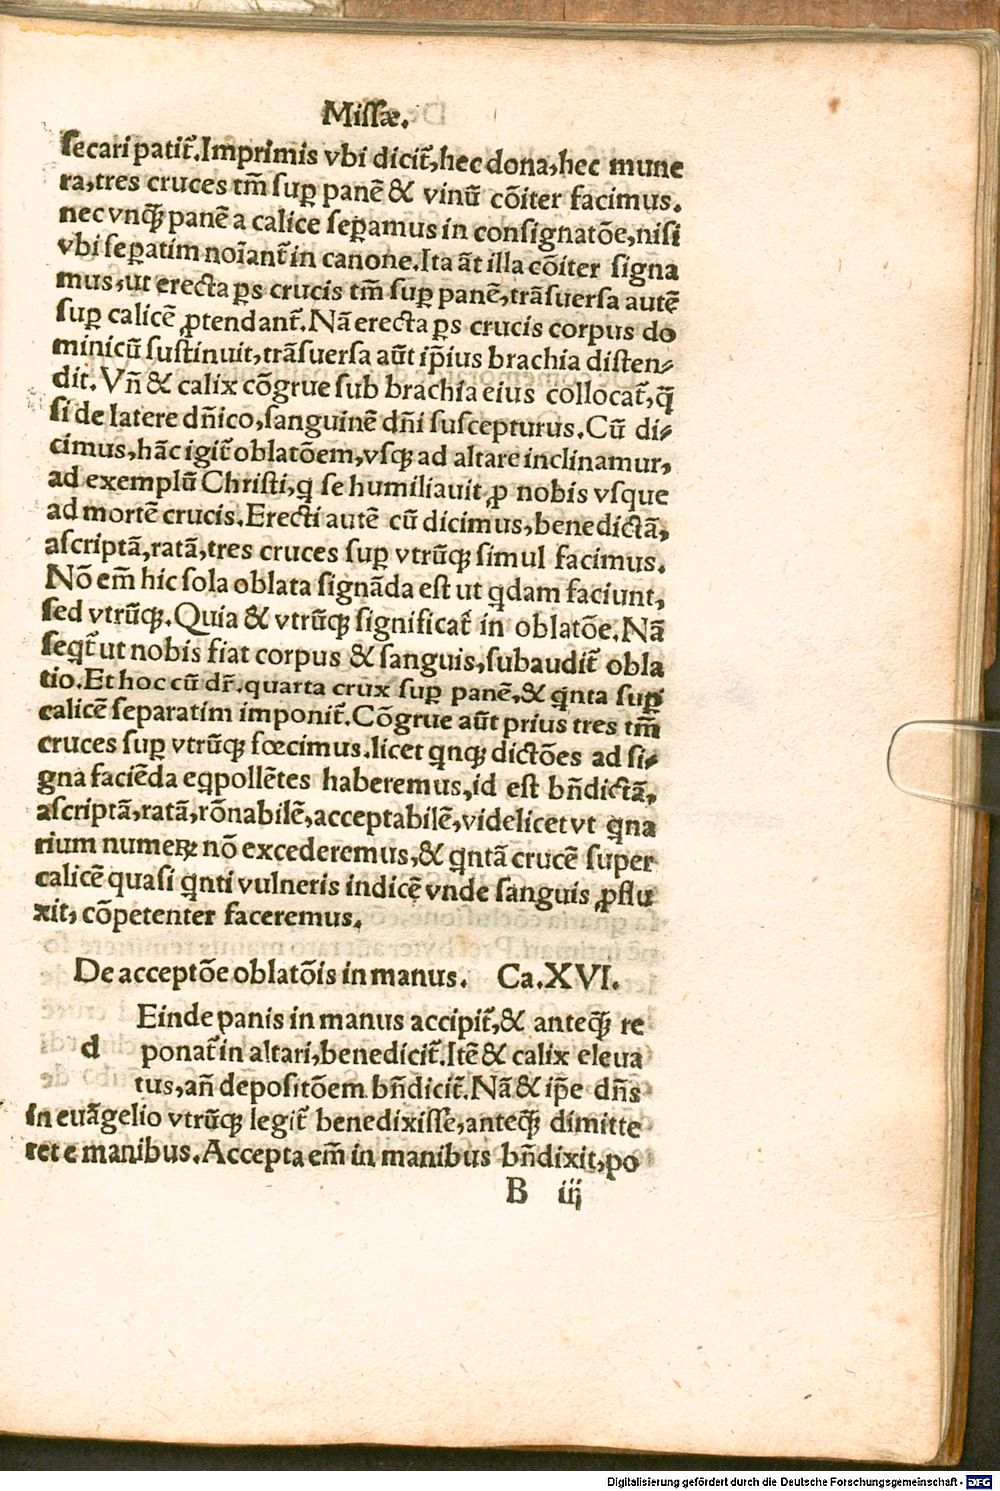 Missæ.
ſecari patit᷑.Imprimis vbi dicit᷑,hec dona,hec mune
ra,tres cruces tm̄ ſuꝑ panē & vinū cōiter facimus.
nec vnꝗ̄ panē a calice ſeꝑamus in conſignatōe,niſi
vbi ſeꝑatim noīant᷑ in canone.Ita āt illa cōiter ſigna
mus,ut erecta ꝑs crucis tm̄ ſuꝑ panē,trāſuerſa autē
ſuꝑ calicē ꝓtendant᷑.Nā erecta ꝑs crucis corpus do
minicū ſuſtinuit,trāſuerſa aūt ip̄ius brachia diſten⸗
dit.Vn̄ & calix cōgrue ſub brachia eius collocat᷑,ꝗ̄
ſi de latere dn̄ico,ſanguinē dn̄i ſuſcepturus.Cū di⸗
cimus,hāc igit᷑ oblatōem,vſqꝫ ad altare inclinamur,
ad exemplū Chriſti,ꝗ ſe humiliauit ꝓ nobis vſque
ad mortē crucis.Erecti autē cū dicimus,benedictā,
aſcriptā,ratā,tres cruces ſuꝑ vtrūqꝫ ſimul facimus.
Nō em̄ hic ſola oblata ſignāda eſt ut ꝗdam faciunt,
ſed vtrūqꝫ.Quia & vtrūqꝫ ſignificat᷑ in oblatōe.Nā
ſeꝗt᷑ ut nobis fiat corpus & ſanguis,ſubaudit᷑ obla
tio.Et hoc cū dr̄.quarta crux ſuꝑ panē,& ꝗnta ſuꝑ
calicē ſeparatim imponit᷑.Cōgrue aūt prius tres tm̄
cruces ſuꝑ vtrūqꝫ fœcimus.licet ꝗnqꝫ dictōes ad ſi⸗
gna faciēda eꝗpollētes haberemus,id eſt bn̄dictā,
aſcriptā,ratā,rōnabilē,acceptabilē,videlicet vt ꝗna
rium numeꝝ nō excederemus,& ꝗntā crucē ſuper
calicē quaſi ꝗnti vulneris indicē vnde ſanguis ꝓflu
xit, cōpetenter faceremus.
De acceptōe oblatōis in manus. Ca.XVI.
d Einde panis in manus accipit᷑,& anteꝗ̄ re
ponat᷑ in altari,benedicit᷑.Itē & calix eleua
tus,an̄ depoſitōem bn̄dicit᷑.Nā & ip̄e dn̄s
in euāgelio vtrūqꝫ legit᷑ benedixiſſe,anteꝗ̄ dimitte
ret e manibus.Accepta em̄ in manibus bn̄dixit,po
B iij
Digitalisierung gefördert durch die Deutsche Forschungsgemeinschaft - DFG